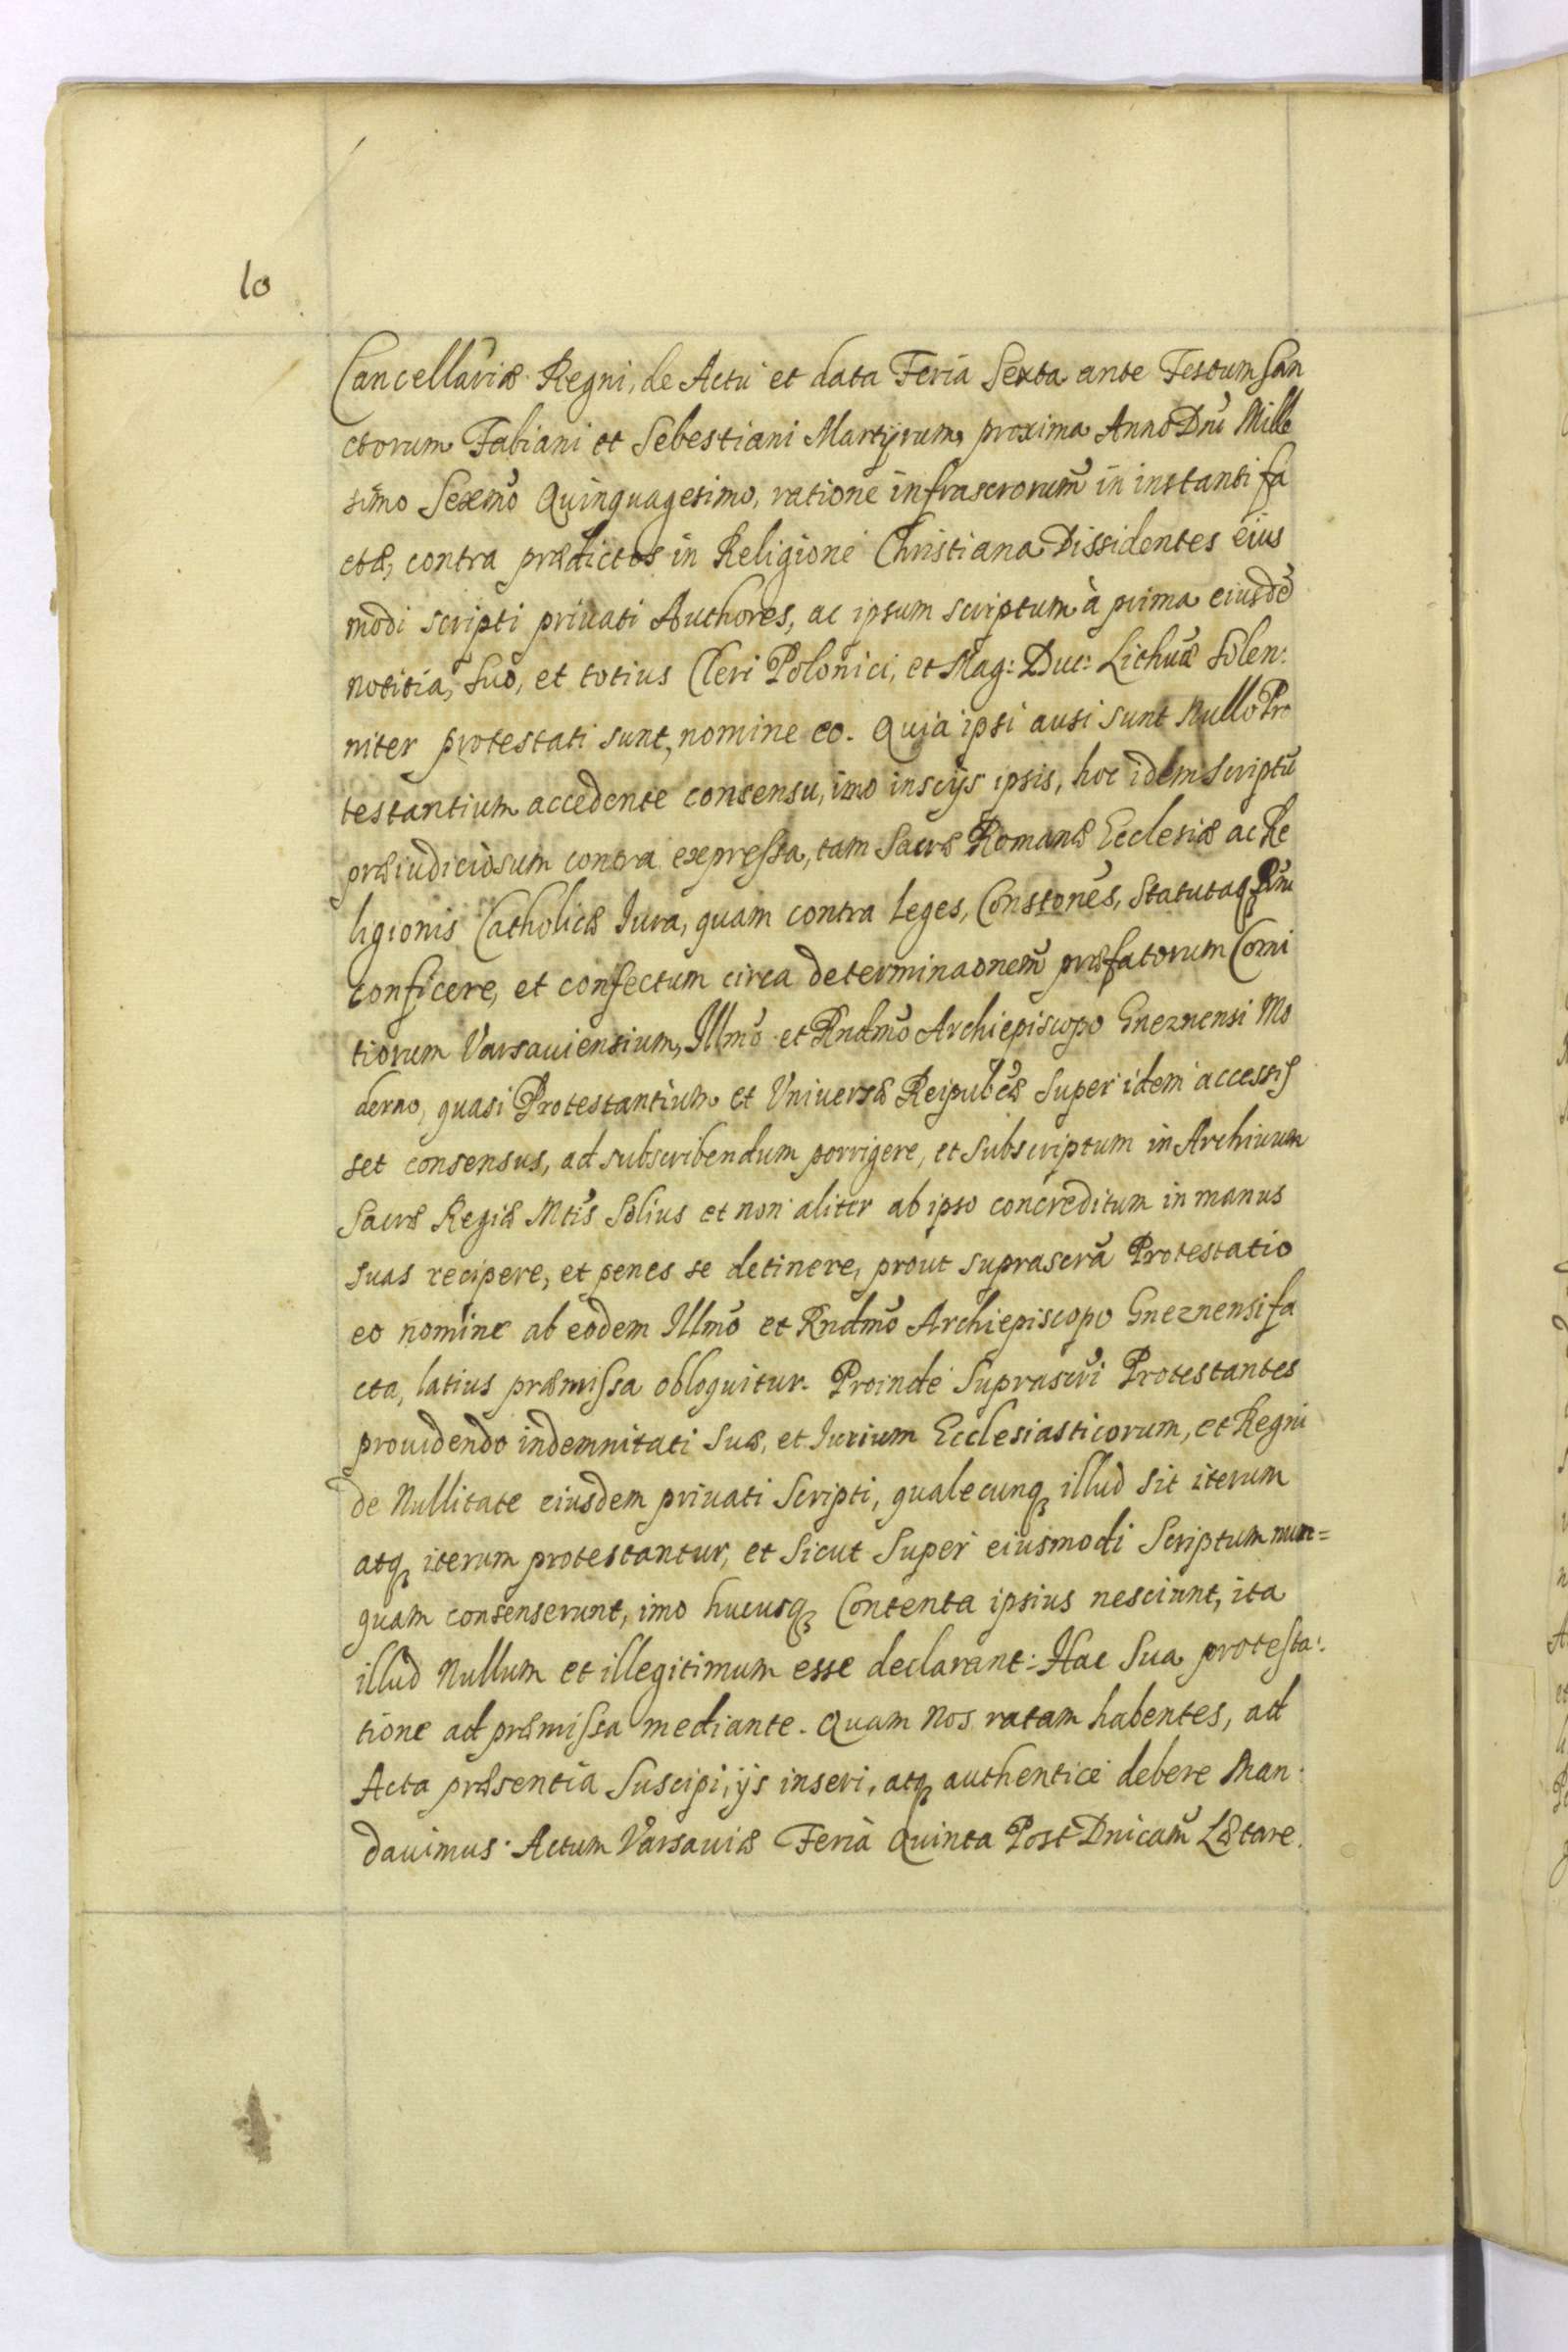 10
Cancellariæ Regni, de Actu et data Feria Sexta ante Festum San
ctorum Fabiani et Sebestiani Martyrum, proxima Anno Dni Mille
simo Sexmo Quinquagesimo, ratione infrascrorum in instanti fa
ctæ, contra prædictos in Religione Christiana Dissidentes eius
modi scripti priuati Authores, ac ipsum scriptum à prima eiusdē
notitia, suo, et totius Cleri Polonici, et Mag: Duc: Lithuæ solen:
niter protestati sunt, nomine eo. Quia ipsi ausi sunt nullo Pro
testantium accedente consensu, imo inscijs ipsis, hoc idem scriptū
præiudiciosum contra expressa, tam Sacræ Romanæ Ecclesiæ ac Re
ligionis Catholicæ Iura, quam contra Leges, Constones, Statutaq
conficere, et confectum circa determinaonem præfatorum Comi
tiorum Varsauiensium, Illmo et Rndmo Archiepiscopo Gneznensi Mo
derno, quasi Protestantium et Vniuersæ Reipubcæ super idem accessis
set consensus, ad subscribendum porrigere, et subscriptum in Archiuum
Sacræ Regiæ Mtis solius et non aliter ab ipso concreditum in manus
suas recipere, et penes se detinere, prout suprascra Protestatio
eo nomine ab eodem Illmo et Rndmo Archiepiscopo Gneznensi fa
cta, latius præmissa obloquitur. Proinde Suprascri Protestantes
prouidendo indemnitati suæ, et Iurium Ecclesiasticorum, et Regni
de Nullitate eiusdem priuati Scripti, qualecunq illud sit iterum
atq iterum protestantur, et sicut super eiusmodi Scriptum nun=
quam consenserunt, imo hucusq Contenta ipsius nesciunt, ita
illud Nullum et illegitimum esse declarant: Hac sua protesta:
tione ad præmissa mediante. Quam Nos ratam habentes, ad
Acta præsentia suscipi, ijs inseri, atq authentice debere Man:
dauimus. Actum Varsauiæ Feria Quinta Post Dnicam Lætare.